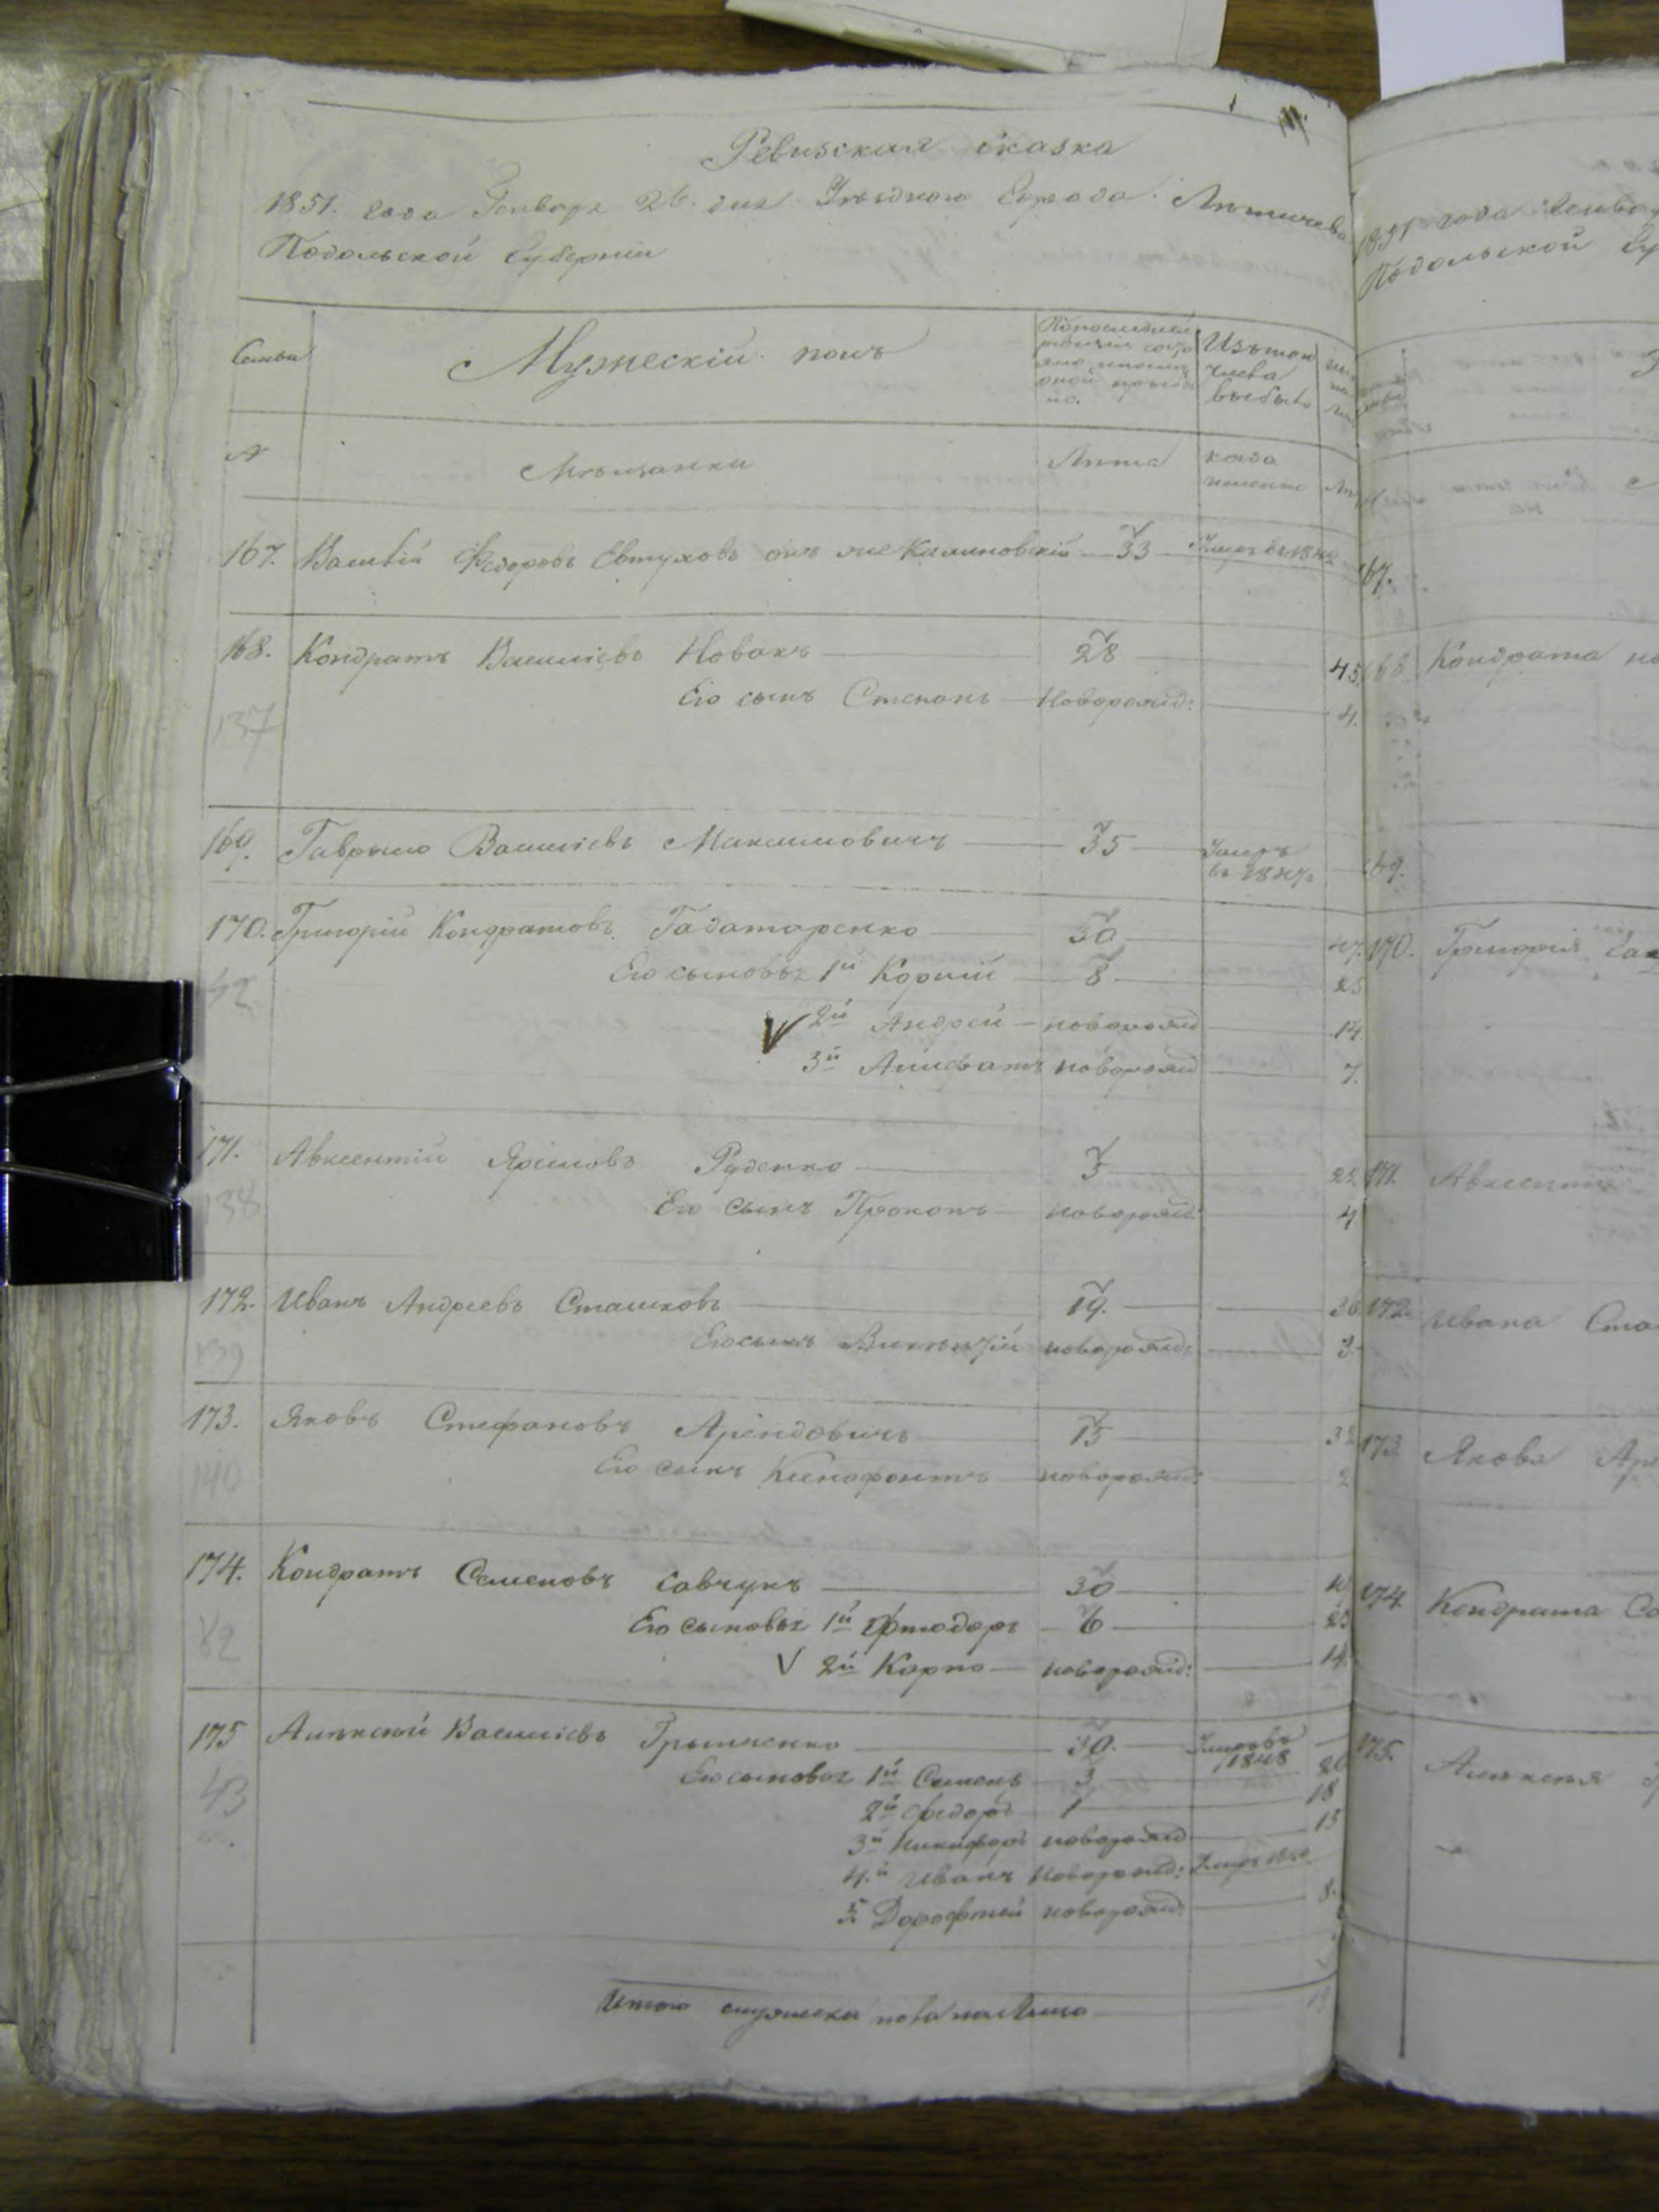 Ревизская сказка
1851. года Генваря 26. дня Уѣзднаго Города Лѣтичева
Подольской Губерніи
Семьи
Мужескій полъ
Изъ того числа выбыло
№
Мѣщанки
Лѣта
когда именно
167. Василій Федоровъ Евтуховъ онъ же Калиновскій 33 Умеръ въ 1842
168. Кондратъ Василіевъ Новакъ 28 45
Его сынъ Степанъ Новорожд: 4.
137
169. Гаврыло Василіевъ Максимовичъ 35 Умеръ въ 1847
170. Григорій Кондратовъ Гадатаренко 30 47.
Его сыновья 1й Корній 8 25
42
2й Андрей новорожд 14.
3й новорожд 7.
171. Авксентій Яремовъ Руденко 22
Его сынъ Прокопъ новорожд: 4
138
172. Иванъ Андреевъ Сташковъ 19. 36
Его сынъ новорожд: 3
139
173. Яковъ Стефановъ Арендовичъ 15 32
Его сынъ Ксенофонтъ новорожд: 2
140
174. Кондратъ Семеновъ Савчукъ 30
Его сыновья 1й 6 23
82
2й Карпо новорожд: 14
175 Алексѣй Василіевъ 30. Умеръ въ 1848
Его сыновья 1й Семенъ 3 20
43
2й Федоръ 1 18
3й Никифоръ новорожд 15
4.й Иванъ Новорожд: Умеръ
5 Дорофтей новорожд: 8.
Итого мужеска пола на лицо
1851 года Генвар
Подольской Гу
167.
168 Кондрата
169.
170. Григорія
171. Авксентія
172. Ивана Ста
173 Якова Аре
174. Кондрата Са
175. Алексѣя